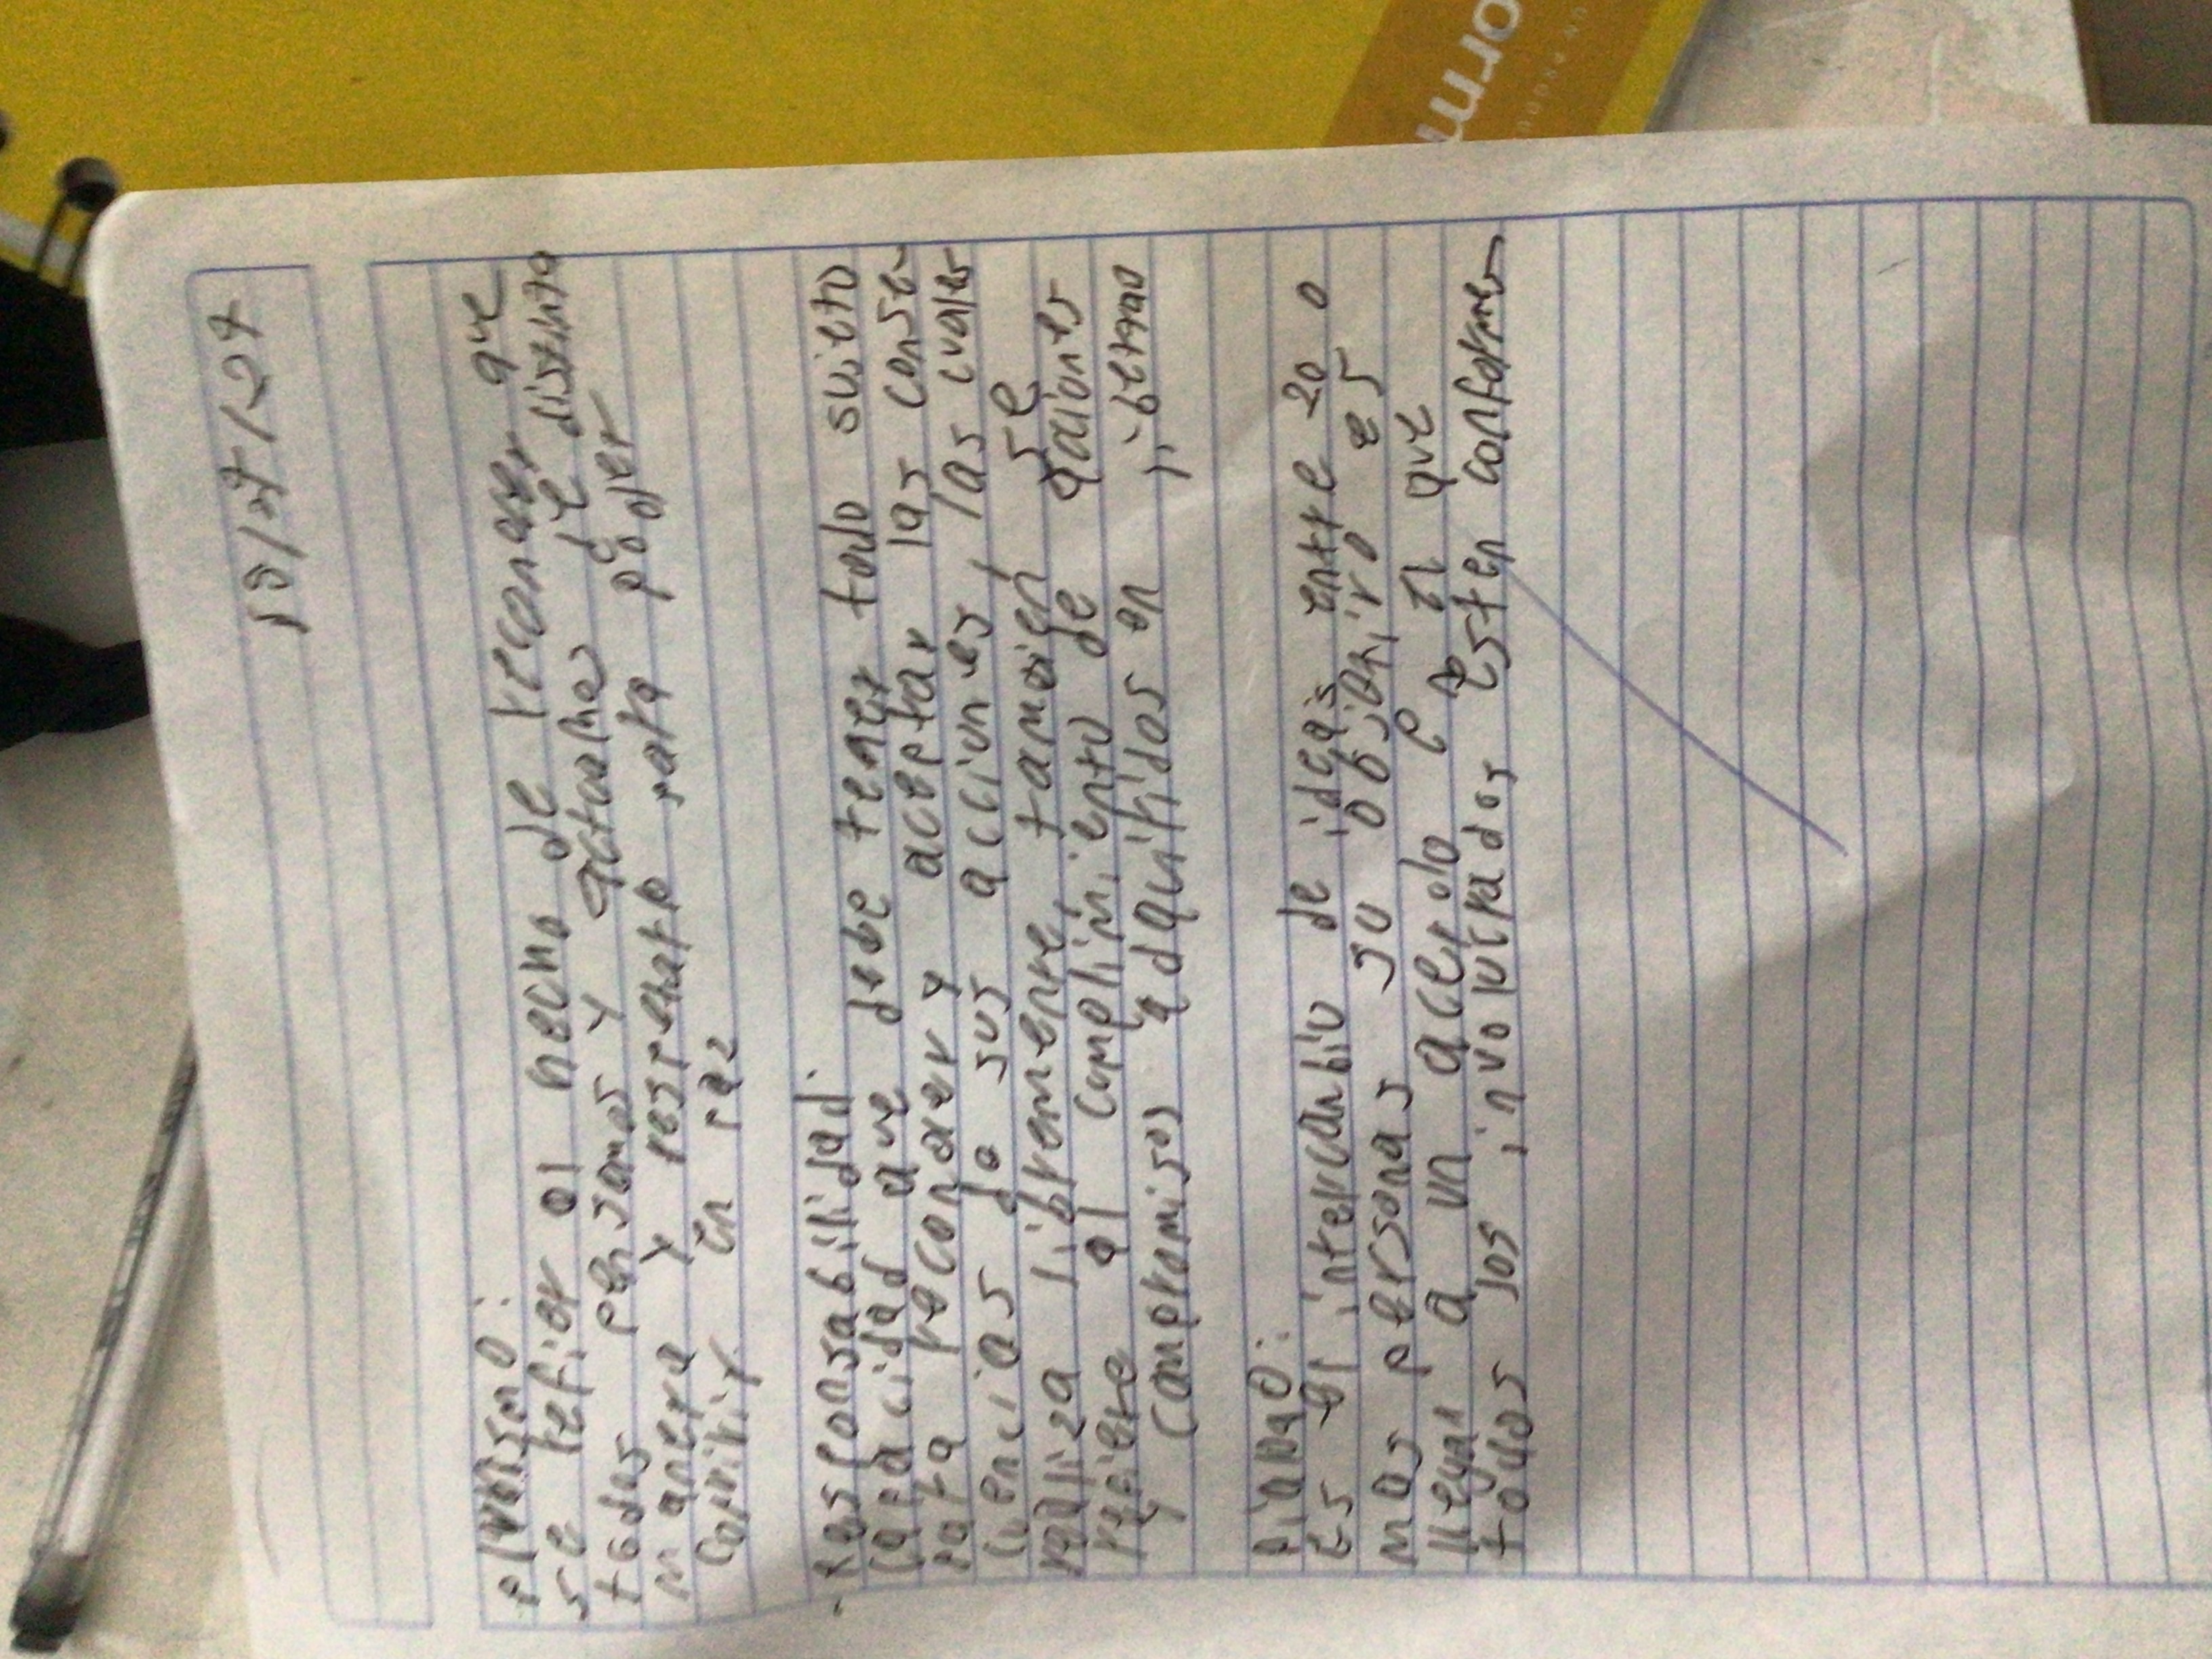 orm
Plurarismo:
se refier al hecho de reconocer que
todos pensamos y actuamos de distinta
manera y respetarlo para poder
combivir en paz
Responsabilidad:
Capacidad que debe tener todo sujeto
para reconocer y aceptar las conse
cuencias de sus acciones, las cuales
realiza libremente, tambien se
refiere al complimiento de
compromisos adquiridos en libertad
Dialogo:
es el intercanbio de ideas entre 20 o
mas personas su objetivo es
llegar a un acerdo en el que
todos los involucrados esten conformes